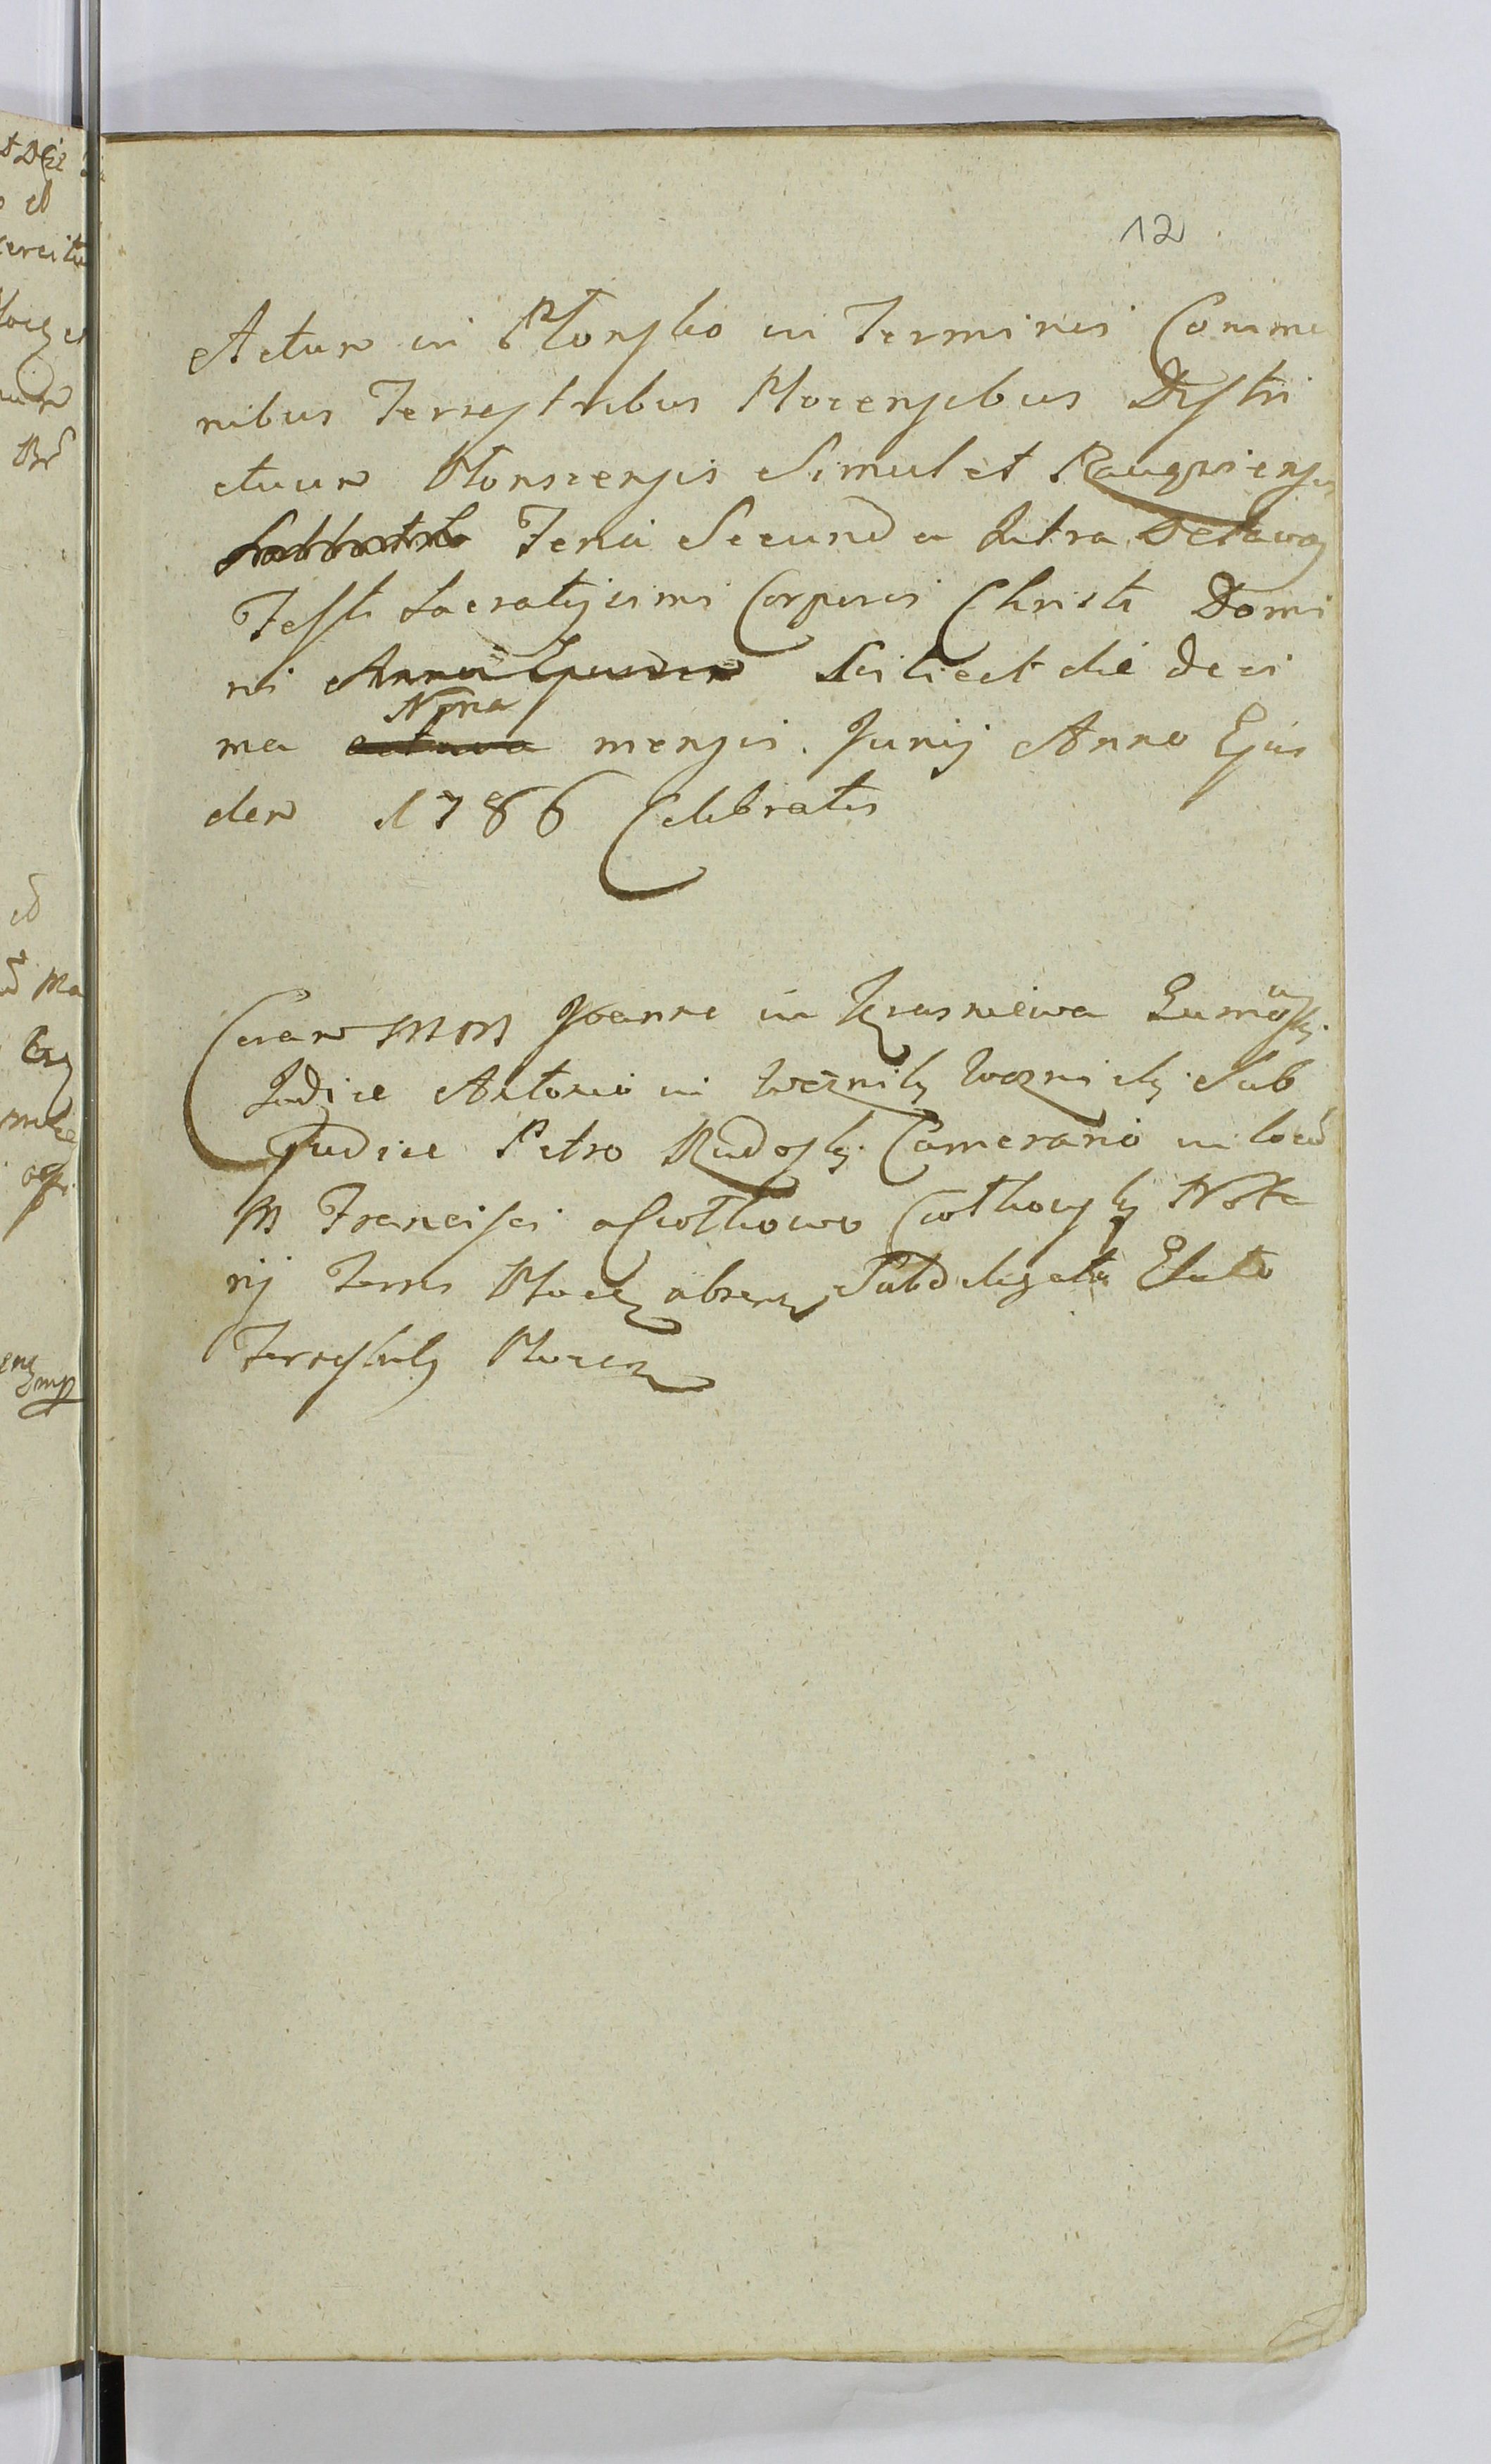 12
Actum in Płonsko in Terminis Commu
nibus Terrestribus Plocensibus Distri
ctuum Plonscensis Simul et Raugzien̄sis
Feria Secunda Intra Octavas
Festi Sacratissimi Corporis Christi Domi
ni Anno Ejusdem Scilicet die deci
Nona
ma octava mensis Junij Anno Ejus
dem 1786 Celebratis
Coram MM Joanne in Krasniewa
Judice Antonio in Woznicki Sub
Judice Petro Rudoski Camerario in locū
M Francisci a Ciołkowo Ciołkowski Nota
rij Terris Plocen absen Subdelegato Electo
Terrestribus Plocen